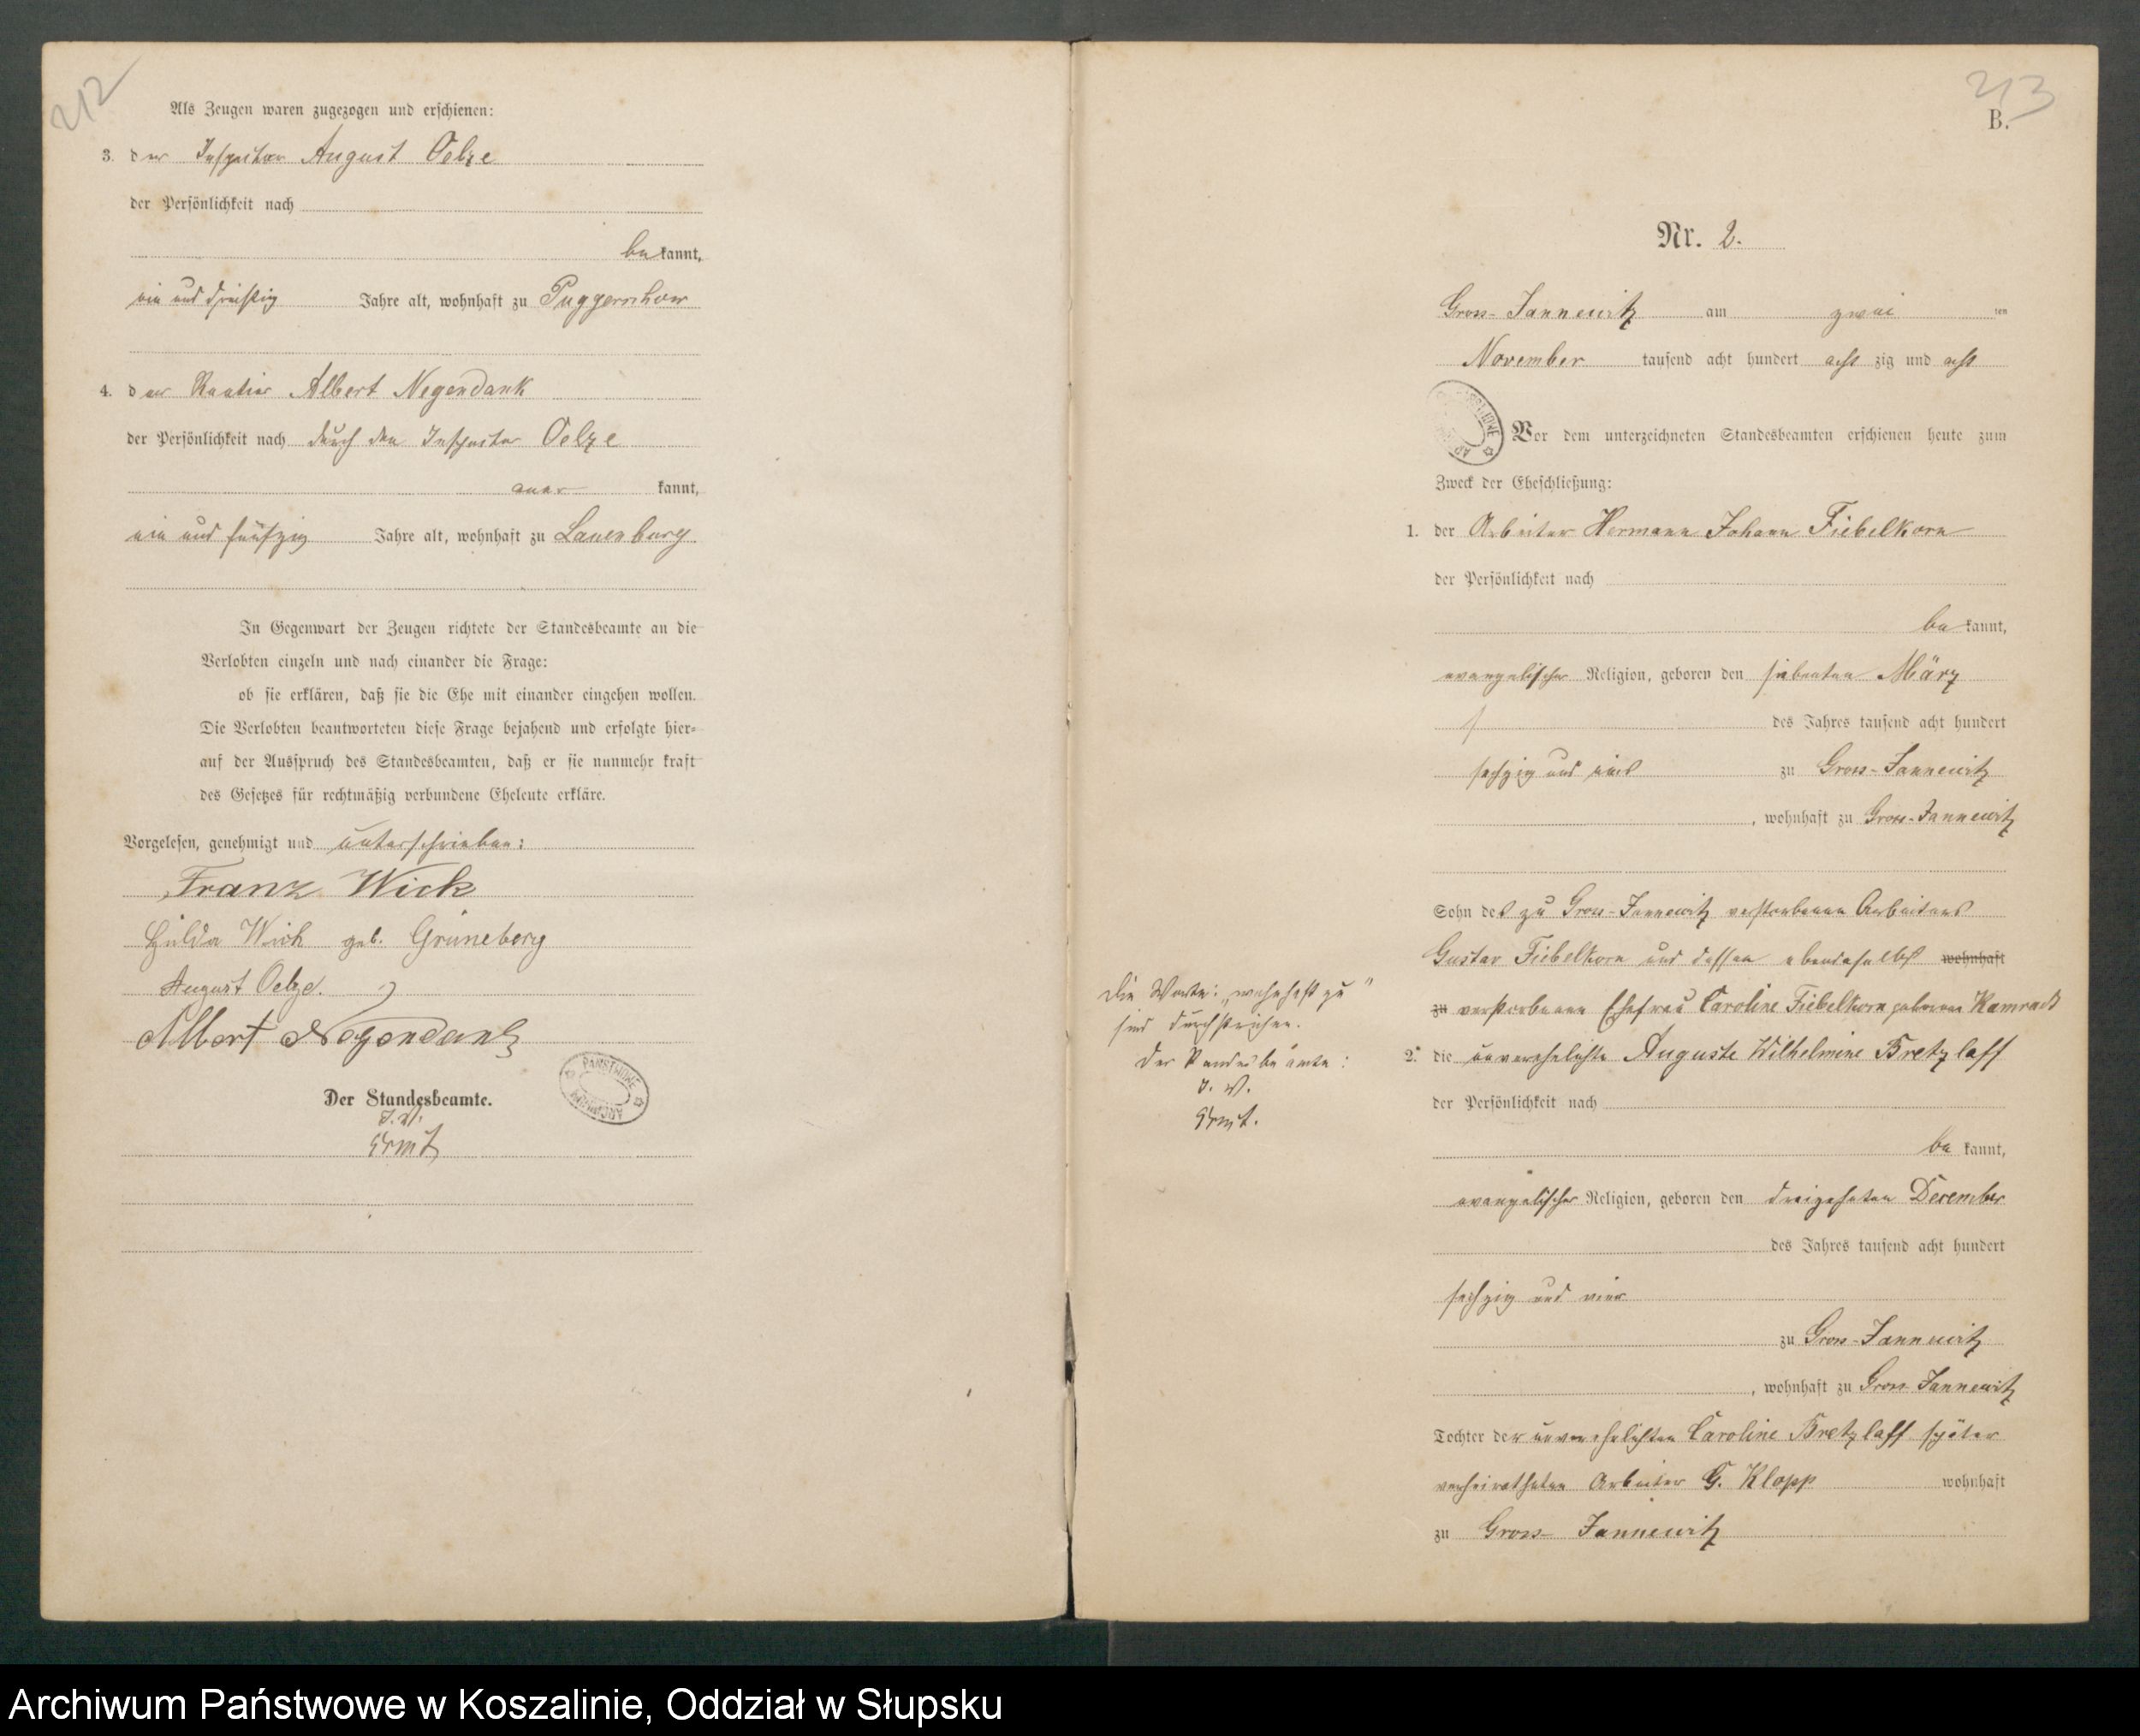 212
Als Zeugen waren zugezogen und erschienen:
3. der Inspector August Oelze
der Persönlichkeit nach
be kannt,
ein und dreißig Jahre alt, wohnhaft zu Puggerschow
4. der Rentier Albert Negendank
der Persönlichkeit nach durch den Inspector Oelze
aner kannt,
ein und fünfzig Jahre alt, wohnhaft zu Lauenburg
In Gegenwart der Zeugen richtete der Standesbeamte an die
Verlobten einzeln und nach einander die Frage:
ob sie erklären, daß sie die Ehe mit einander eingehen wollen.
Die Verlobten beantworteten diese Frage bejahend und erfolgte hier-
auf der Ausspruch des Standesbeamten, daß er sie nunmehr kraft
des Gesetzes für rechtmäßig verbundene Eheleute erkläre.
Vorgelesen, genehmigt und unterschrieben:
Franz Wick
Hulda Wick geb. Grüneberg
August Oelze.
Albert Negendank
Der Standesbeamte.
J. V.
213
B.
Nr. 2.
Gross-Jannewitz am zwei ten
November tausend acht hundert acht zig und acht
Vor dem unterzeichneten Standesbeamten erschienen heute zum
Zweck der Eheschließung:
1. der Arbeiter Hermann Johann Fiebelkorn
der Persönlichkeit nach
be kannt,
evangelischer Religion, geboren den siebenten März
des Jahres tausend acht hundert
sechzig und eins zu Gross-Jannewitz
, wohnhaft zu Gross-Jannewitz
Sohn des zu Gross-Jannewitz verstorbenen Arbeiters
Gustav Fiebelkorn und dessen ebendaselbst wohnhaft
zu verstorbenen Ehefrau Caroline Fiebelkorn geborene Kamradt
Die Worte: „wohnhaft zu"
sind durchstrichen.
Der Standesbeamte:
J. V.
2. die unverehelichte Auguste Wilhelmine Bretzlaff
der Persönlichkeit nach
be kannt,
evangelischer Religion, geboren den dreizehnten December
des Jahres tausend acht hundert
sechzig und vier
zu Gross-Jannewitz
, wohnhaft zu Gross Jannewitz
Tochter der unverehelichten Caroline Bretzlaff später
verheiratheten Arbeiter G. Klopp wohnhaft
zu Gross-Jannewitz
Archiwum Państwowe w Koszalinie, Oddział w Słupsku